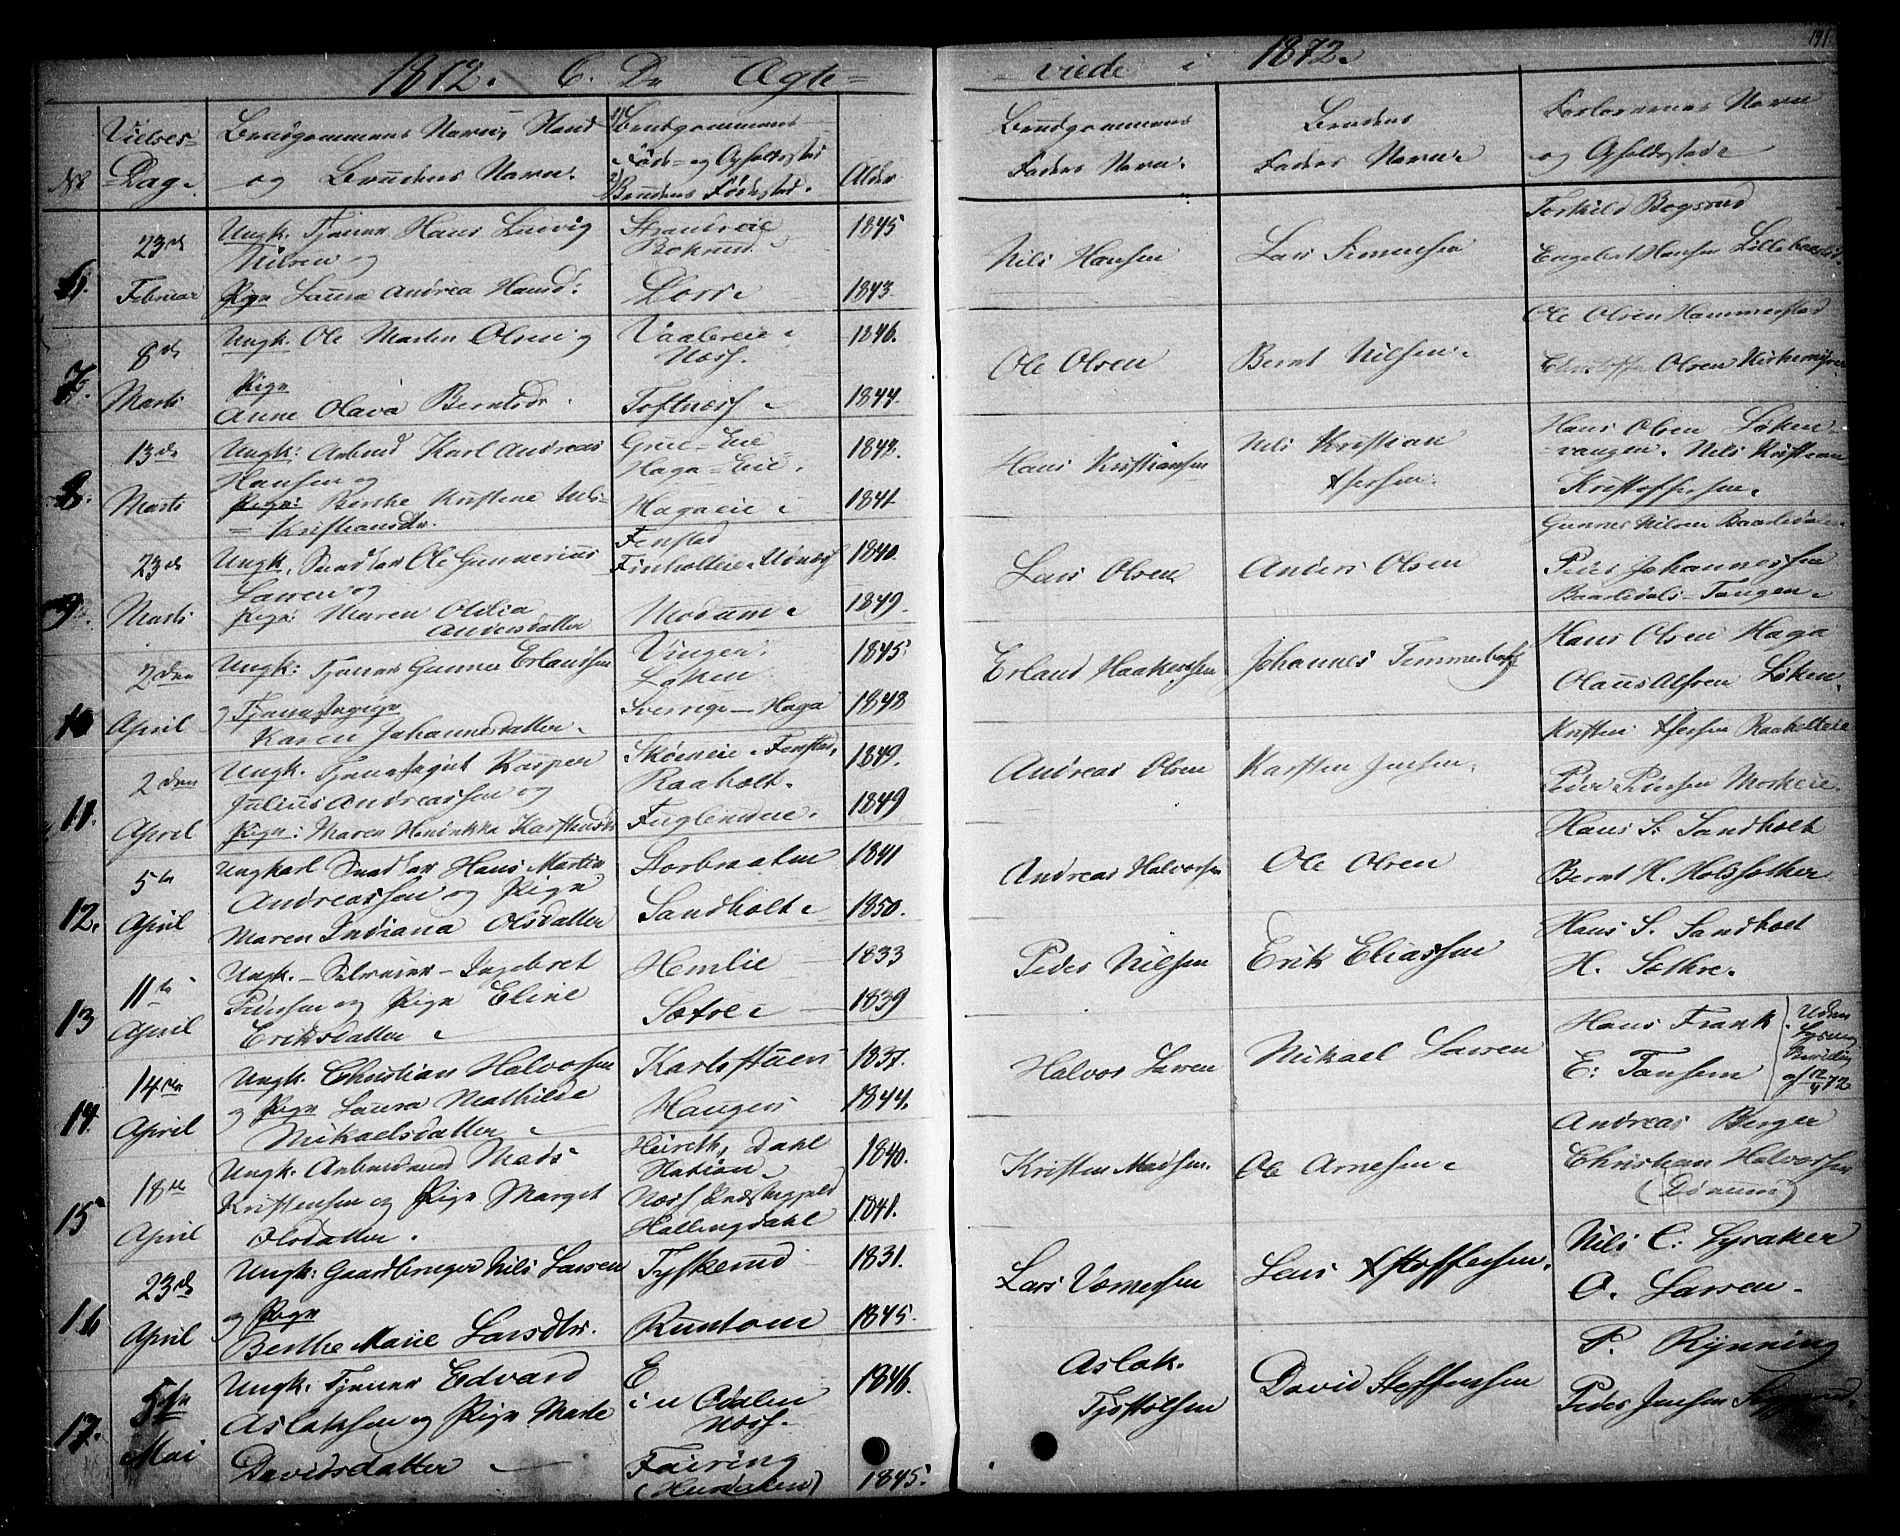 1872. C. De Ægte=
Vielses= Brudgommens Navn, Stand 1) Brudgommens
No Dag. og Brudens Navn. Føde= og Opholdssted Alder
2) Brudens Fødested.
6. 23de Februar
Ungk. Tjener Hans Ludvig
Nilsen og
Pige Laura Andrea Hansd:
1845
1843
7. 8de Marts
Ungk. Ole Martin Olsen og
Pige
Anne Olava Berntsdr.
Vaalereie
Næss.
Toftnæss
1846.
1844
8. 13de Marts
Ungk: Arbmd Karl Andreas
Hansen og
Pige: Berthe Kristine Nils=
=Kristiansdr.
Haga=Eie.
Hagaeie
1842.
1841
9. 23de Marts
Ungk. Snedker Ole Gunnerius
Larsen og
Pige: Maren Otilia
Andersdatter
Fenstad
Finholteie
Modum
1840.
1849.
10 2den April
Ungk: Tjener Gunner Erlandsen
og Tjenestepige
Karen Johannesdatter.
Vinger
Løken
Sverrige – Haga
1845
1848
11. 2den April
Ungk. Tjenestegut Kasper
Julius Andreassen og
Pige: Maren Hendrikka Karstensdr
Skøineie. Fenstad,
Raaholt.
Fuglendeie.
1849.
1849
12. 5te April
Ungkarl Snedker Hans Martin
Andreassen og Pige
Maren Indiana Olsdatter
Storbmalm
Sandholt
1841
1850.
13 11te April
Ungk. – Selveier – Ingebret
Pedersen og Pige Eline
Eriksdatter
Hemlie
Sætre
1833
1839
14. 14de April
Ungk. Christian Halvorsen
og Pige Laura Mathilde
Mikaelsdatter
Karlsstuen
Haugen
1837.
1844.
15 18de April
Ungk. Arbeidsmd Mads
Kristensen og Pige Marget
Olsdatter.
Dahl
Station.
Hallingdahl
1840.
1841.
16 23de April
Ungk: Gaardbruger Nils Larsen
og Pige
Berthe Marie Larsdtr.
Tyskerud
Runtom
1831.
1845.
17. 5te Mai
Ungk. Tjener Edvard
Aslaksen og Pige Marte
Davidsdatter
E
i n Odalen
Næss.
Fæiring
(Hurdalen)
1846.
1845.
viede i 1872. 191
Brudgommens Brudens Forlovernes Navn
Faders Navn. Faders Navn. og Opholdssted
Nils Hansen Lars Simensen
Torkild Bogsrud
Engebret Hansen
Ole Olsen Bernt Nilsen
Ole Olsen Hammerstad
Christoffer Olsen
Hans Kristiansen Nils Kristian
Xfersen.
Hans Olsen Løken=
=vangen. Nils Kristian
Kristoffersen.
Lars Olsen Anders Olsen
Gunner Nilsen
Peder Johannessen
Baarlidals=Tangen.
Erland Haakensen Johannes
Hans Olsen Haga
Olaus Alfsen Løken.
Andreas Olsen Karsten Jensen.
Kristen Xfersen Raaholteie
Peder Morkeie.
Andreas Halvorsen Ole Olsen
Hans S. Sandholt
Bernt H. Holsfother
Peder Nilsen Erik Eliassen
Hans S. Sandholt
H. Sæthre.
Halvor Larsen Mikael Larsen
Hans Frank
E: Tansem
Uden
Lysning
af 12/4 72
Kristen Madsen. Ole Arnesen
Andreas Berger
Christian Halvorsen
(Dønnum)
Lars Xstoffersen.
Nils C: Lysaker
O. Larsen.
Aslak
Tjøstolsen
David Steffensen
P. Rynning
Peder Jensen